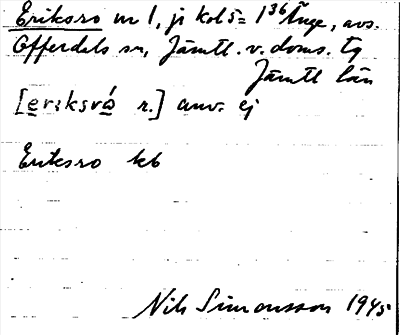 Eriksro nr 1, jr kols = 1³⁶ Änge, avs.
Offerdals sn, Jämtl. v. doms. tg
Jämtl län
[eriksró r.] anv. ej
Eriksro kb
Nils Simonsson 1945